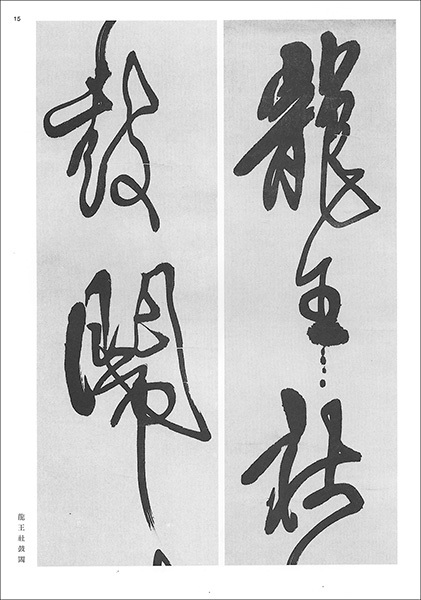 15
龍王社
鼓閙
龍王社鼓閙